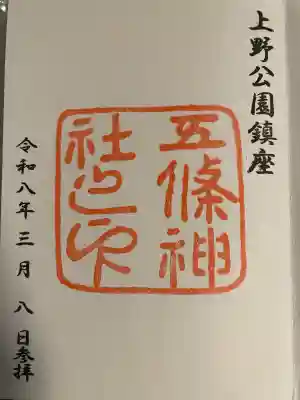 上野公園鎮座
五條神
社之印
令和八年三月八日参拝